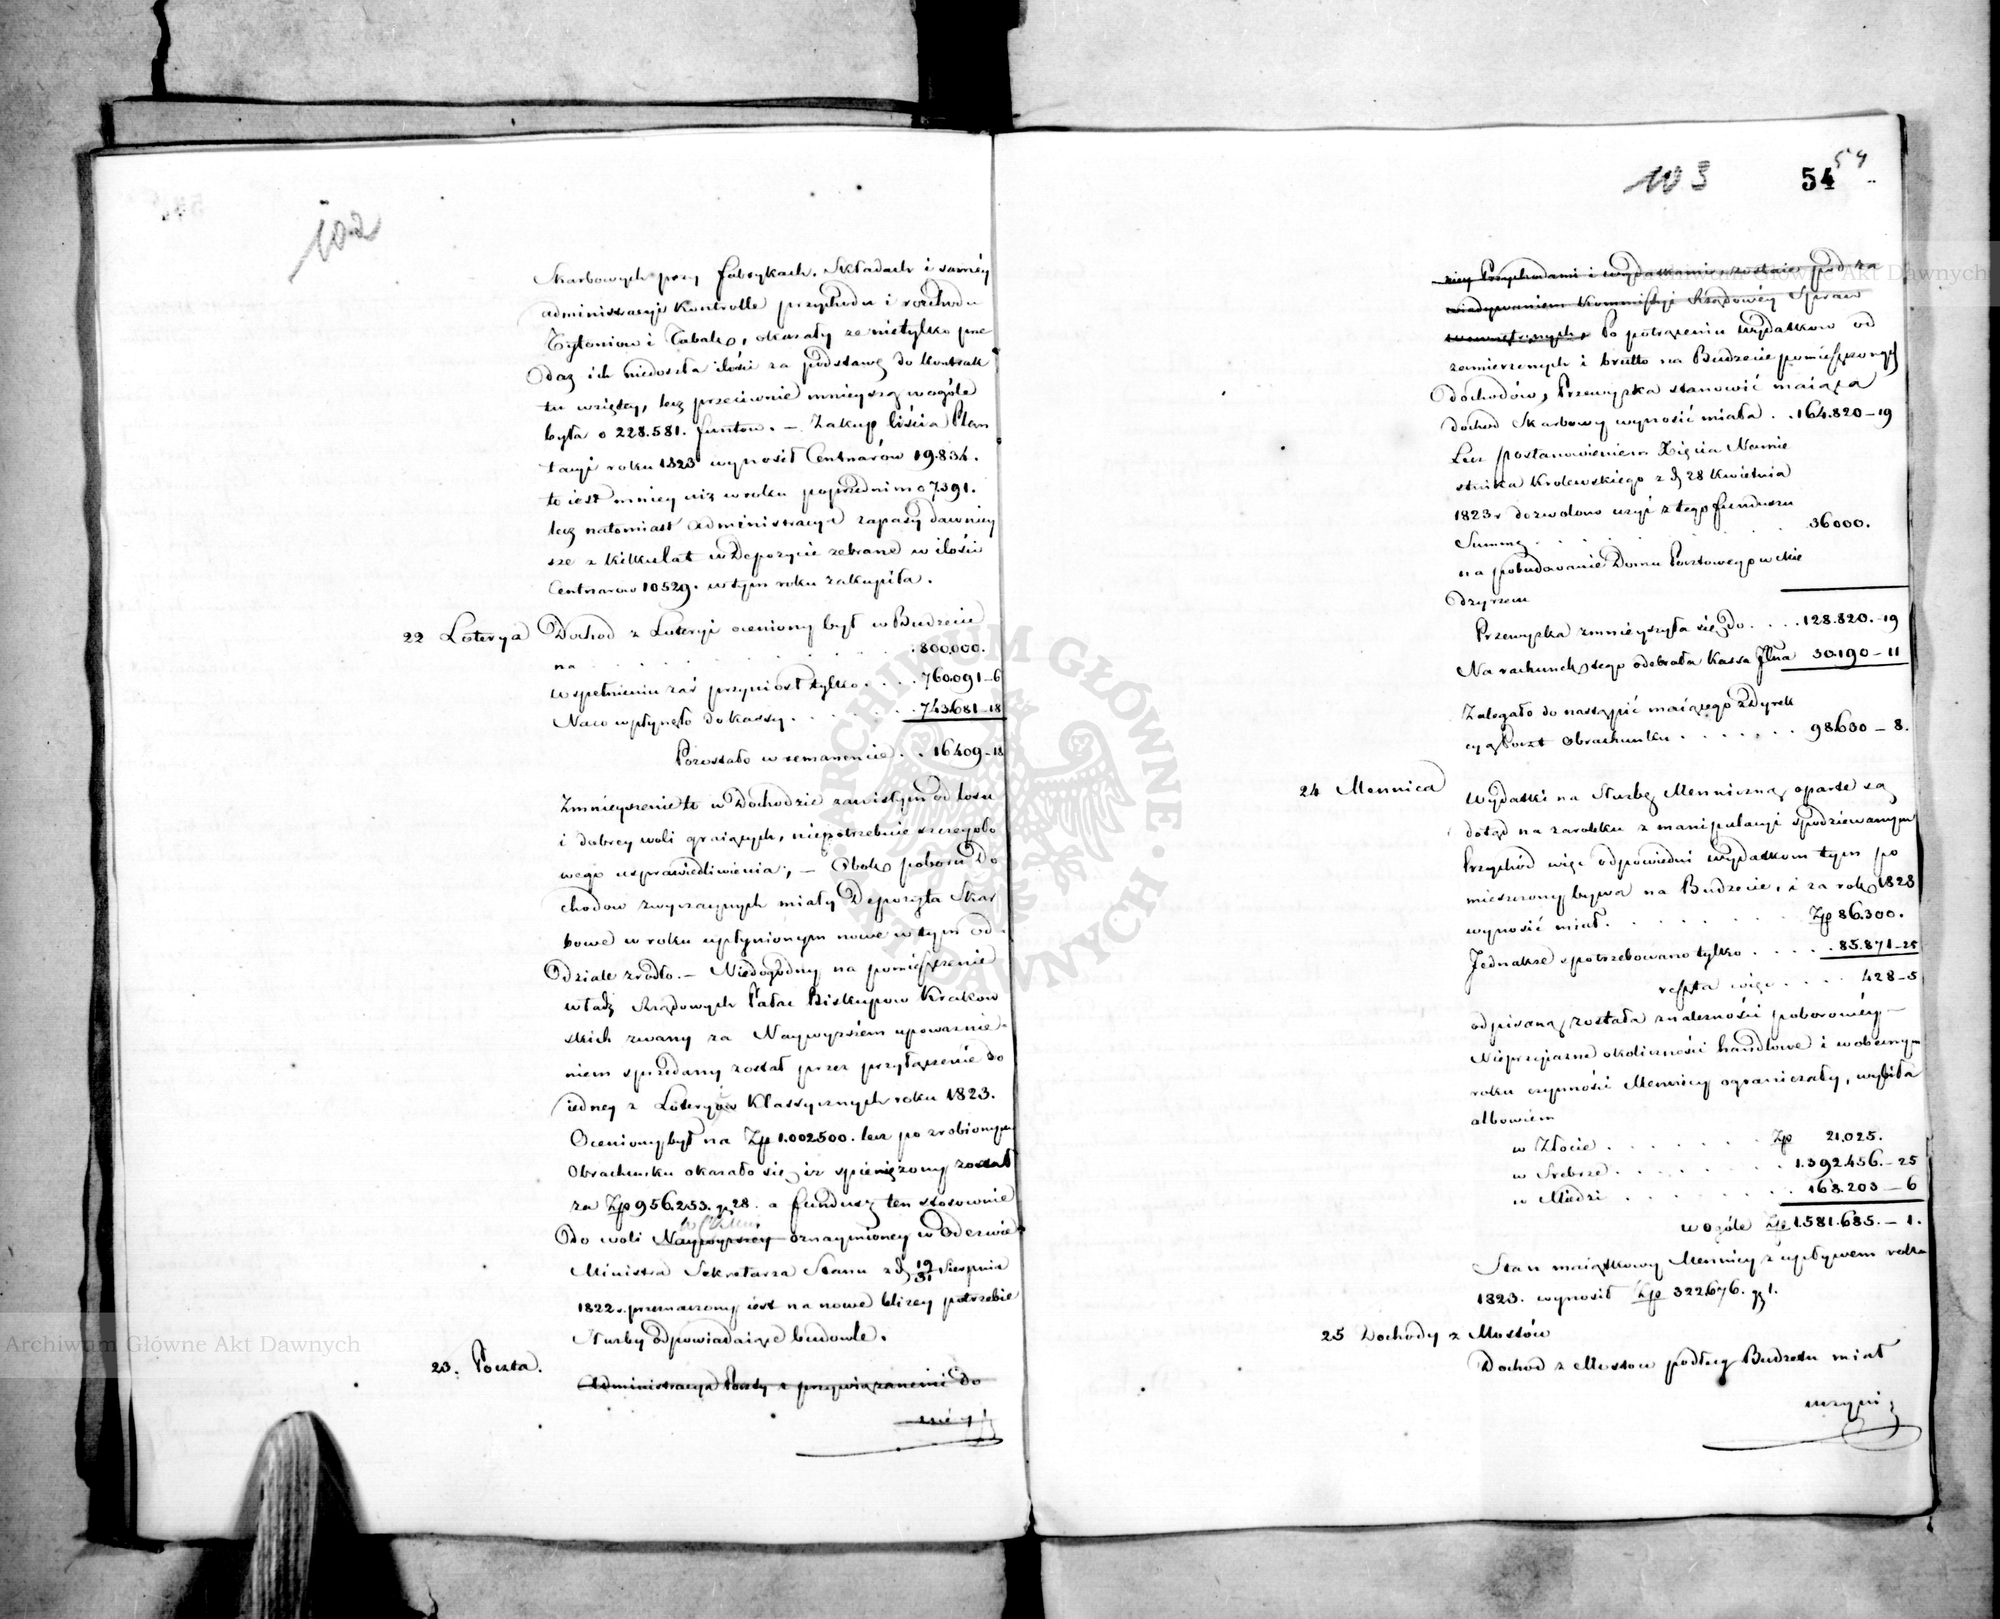 102
Skarbowych przy fabrykach, Składach i saméy
administracyi Kontrolle przychodu i rozchodu
Tytoniow i Tabak, okazały ze nietylko prze
daz ich niedoszła ilości za podstawę do kontrak
tu wziętey, lecz przeciwnie mnieyszą wogóle
była o 228.581. funtow. — Zakup liścia Plan
tacyi roku 1823 wynosił Centnarów 19.834.
to iest mniey niz w roku poprzednim o 7391.
lecz natomiast administracya zapasy dawniey
sze z kilku lat w Depozycie zebrane w ilości
Centnarow 10529. w tym roku zakupiła.
22 Loterya Dochod z Loteryi oceniony był w Budzecie
na . . . . . . . 800,000.
w spełnieniu zaś przyniosł tylko . . . . 760.091-6
Naco wpłynęło do kassy . . . . . . 743.681-18
Pozostało w remanencie . . 16.409-18
Zmnieyszenie to w Dochodzie zawisłym od losu
i dobrey woli graiących, niepotrzebuie szczegoło
wego usprawiedliwienia; — Obok poboru Do
chodow zwyczaynych miały Depozyta Skar
bowe w roku upłynionym nowe w tym od
dziale zrodło. — Niedogodny na pomieszczenie
władz Rządowych Pałac Biskupow Krakow
skich zwany za Naywyzszem upowaznie-
niem sprzedany został przez przyłączenie do
iedney z Loteryów Klassycznych roku 1823.
Oceniony był na Zp 1.002500. lecz po zrobionym
Obrachunku okazało się, iz spieniężony został
za Zp 956.253. g 28. a fundusz ten stosownie
do woli Naywyzszey oznaymioney w Odezwie
Ministra Sekretarza Stanu z d 19/31 Sierpnia
1822 r. przeznaczony iest na nowe blizey potrzebie
Słuzby odpowiadaiące budowle.
23. Poczta.
Administracya Poczty z przywiązanemi do
niéy
103
54
54
niey Przychodami i wydatkami, zostaie pod za
wiadywaniem Kommissyi Rządowéy Spraw
wewnętrznych. Po potrąceniu wydatkow od
zamierzonych i brutto na Budzecie pomieszczonych
dochodów, Przewyzka stanowić maiąca
dochod Skarbowy wynosić miała . . 164.820-19
Lecz postanowieniem Xięcia Namie
stnika Krolewskiego z d 28 Kwietnia
1823 r dozwolono uzyć z tego funduszu
Summę . . . . . 36000.
na pobudowanie Domu Pocztowego w Mie
dzyrzecu
Przewyzka zmnieyszyła się do . . . . 128.820.-19
Na rachunek tego odebrała Kassa Jlna 30.190-11
Zalegało do nastąpić maiącego z Dyrek
cyą Poczt Obrachunku . . . . . . . 98630-8.
24 Mennica
Wydatki na Słuzbę Menniczną oparte są
dotąd na zarobku z manipulacyi spodziewanym
Przychód więc odpowiedni wydatkom tym po
mieszczony bywa na Budzecie, i za rok 1823
wynosić miał . . . . . Zp 86.300.
Jednakze spotrzebowano tylko . . . . . 85.871-25
reszta więc . . . . 428-5
odpisaną została z nalezności poborowéy —
Nieprzyiazne okoliczności handlowe i w obecnym
roku czynności Mennicy ograniczały, wybiła
albowiem
w Złocie . . . . . . . . Zp 21.025.
w Srebrze . . . . . . . . 1.392.456.-25
w Miedzi . . . . . . . . 168.203-6
w ogóle Zp 1.581.685.-1.
Stan maiątkowy Mennicy z upływem roku
1823. wynosił Zp 322.676. g 1.
25 Dochody z Mostów
Dochod z Mostow podług Budzetu miał
uczyni: